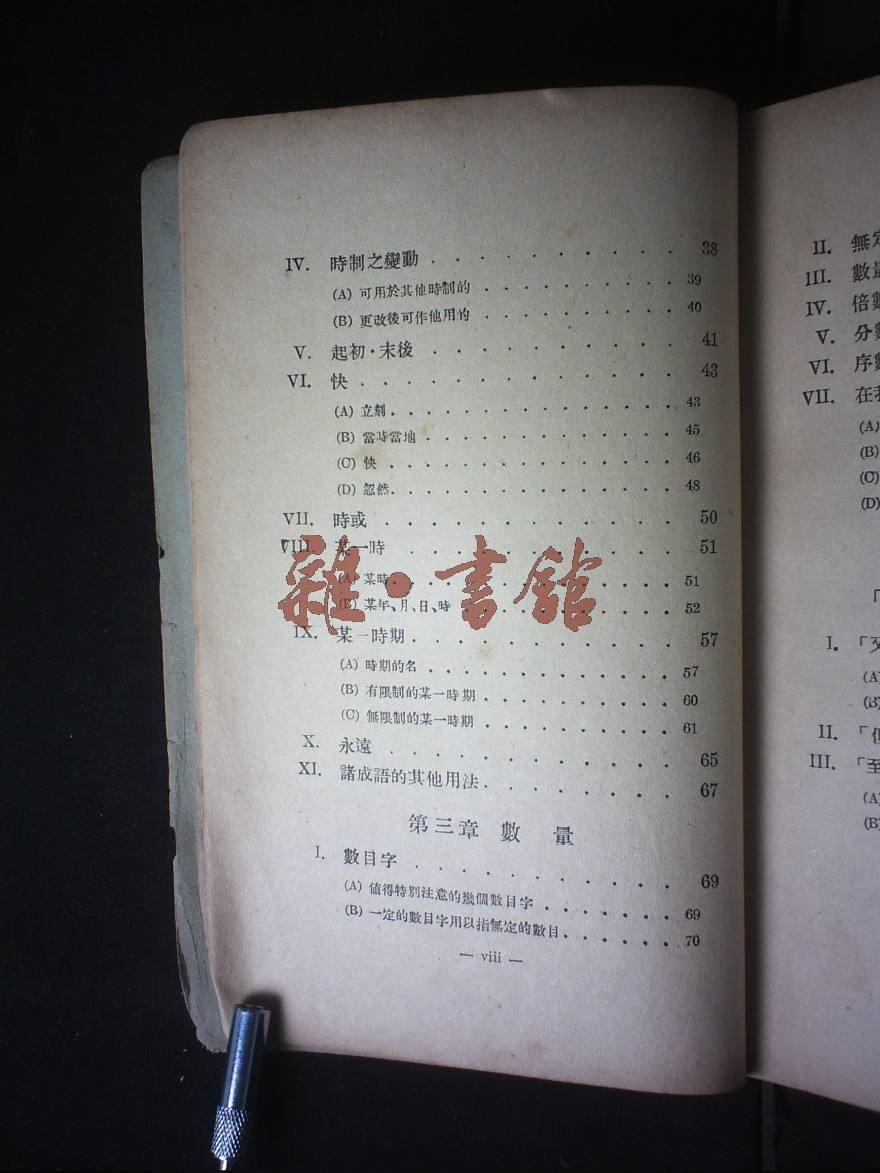 IV. 時制之變動 . . . . . . . . . . . 38
(A) 可用於其他時制的 . . . . . . . . . 39
(B) 更改後可作他用的 . . . . . . . . . 40
V. 起初·末後 . . . . . . . . . . . 41
VI. 快 . . . . . . . . . . . . . . 43
(A) 立刻 . . . . . . . . . . . . . 43
(B) 當時當地 . . . . . . . . . . . 45
(C) 快 . . . . . . . . . . . . . 46
(D) 忽然 . . . . . . . . . . . . . 48
VII. 時或 . . . . . . . . . . . . . 50
VIII. 某一時 . . . . . . . . . . . . 51
(A) 某時 . . . . . . . . . . . . . 51
(B) 某年、月、日、時 . . . . . . . . . 52
雜·書館
IX. 某一時期 . . . . . . . . . . . . 57
(A) 時期的名 . . . . . . . . . . . 57
(B) 有限制的某一時期 . . . . . . . . . 60
(C) 無限制的某一時期 . . . . . . . . . 61
X. 永遠 . . . . . . . . . . . . . 65
XI. 諸成語的其他用法 . . . . . . . . . 67
第三章 數 量
I. 數目字 . . . . . . . . . . . . 69
(A) 値得特別注意的幾個數目字 . . . . . . . 69
(B) 一定的數目字用以指無定的數目 . . . . . . 70
— viii —
II. 無定
III. 數量
IV. 倍數
V. 分數
VI. 序數
VII. 在
(A)
(B)
(C)
(D)
「
I. 「
(A)
(B)
II. 「
III. 「至
(A)
(B)